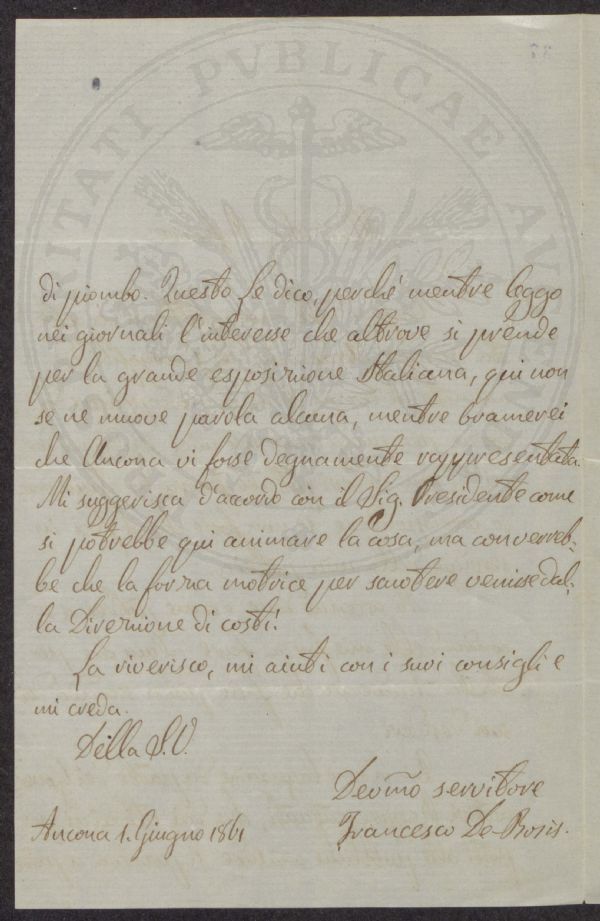 PROSPERITATI PVBLICAE AVGENDAE
di piombo. Questo Le dico, perchè mentre leggo
nei giornali l'interesse che altrove si prende
per la grande esposizione Italiana, qui non
se ne muove parola alcuna, mentre bramerei
che Ancona vi fosse degnamente rappresentata.
Mi suggerisca d'accordo con il Sig. Presidente come
si potrebbe qui animare la cosa, ma converreb-
be che la forza motrice per scuotere venisse dal-
la Direzione di costì.
La riverisco, mi aiuti con i suoi consigli e
mi creda.
Della S.V.
Devm̃o servitore
Ancona 1. Giugno 1861
Francesco De-Bosis.